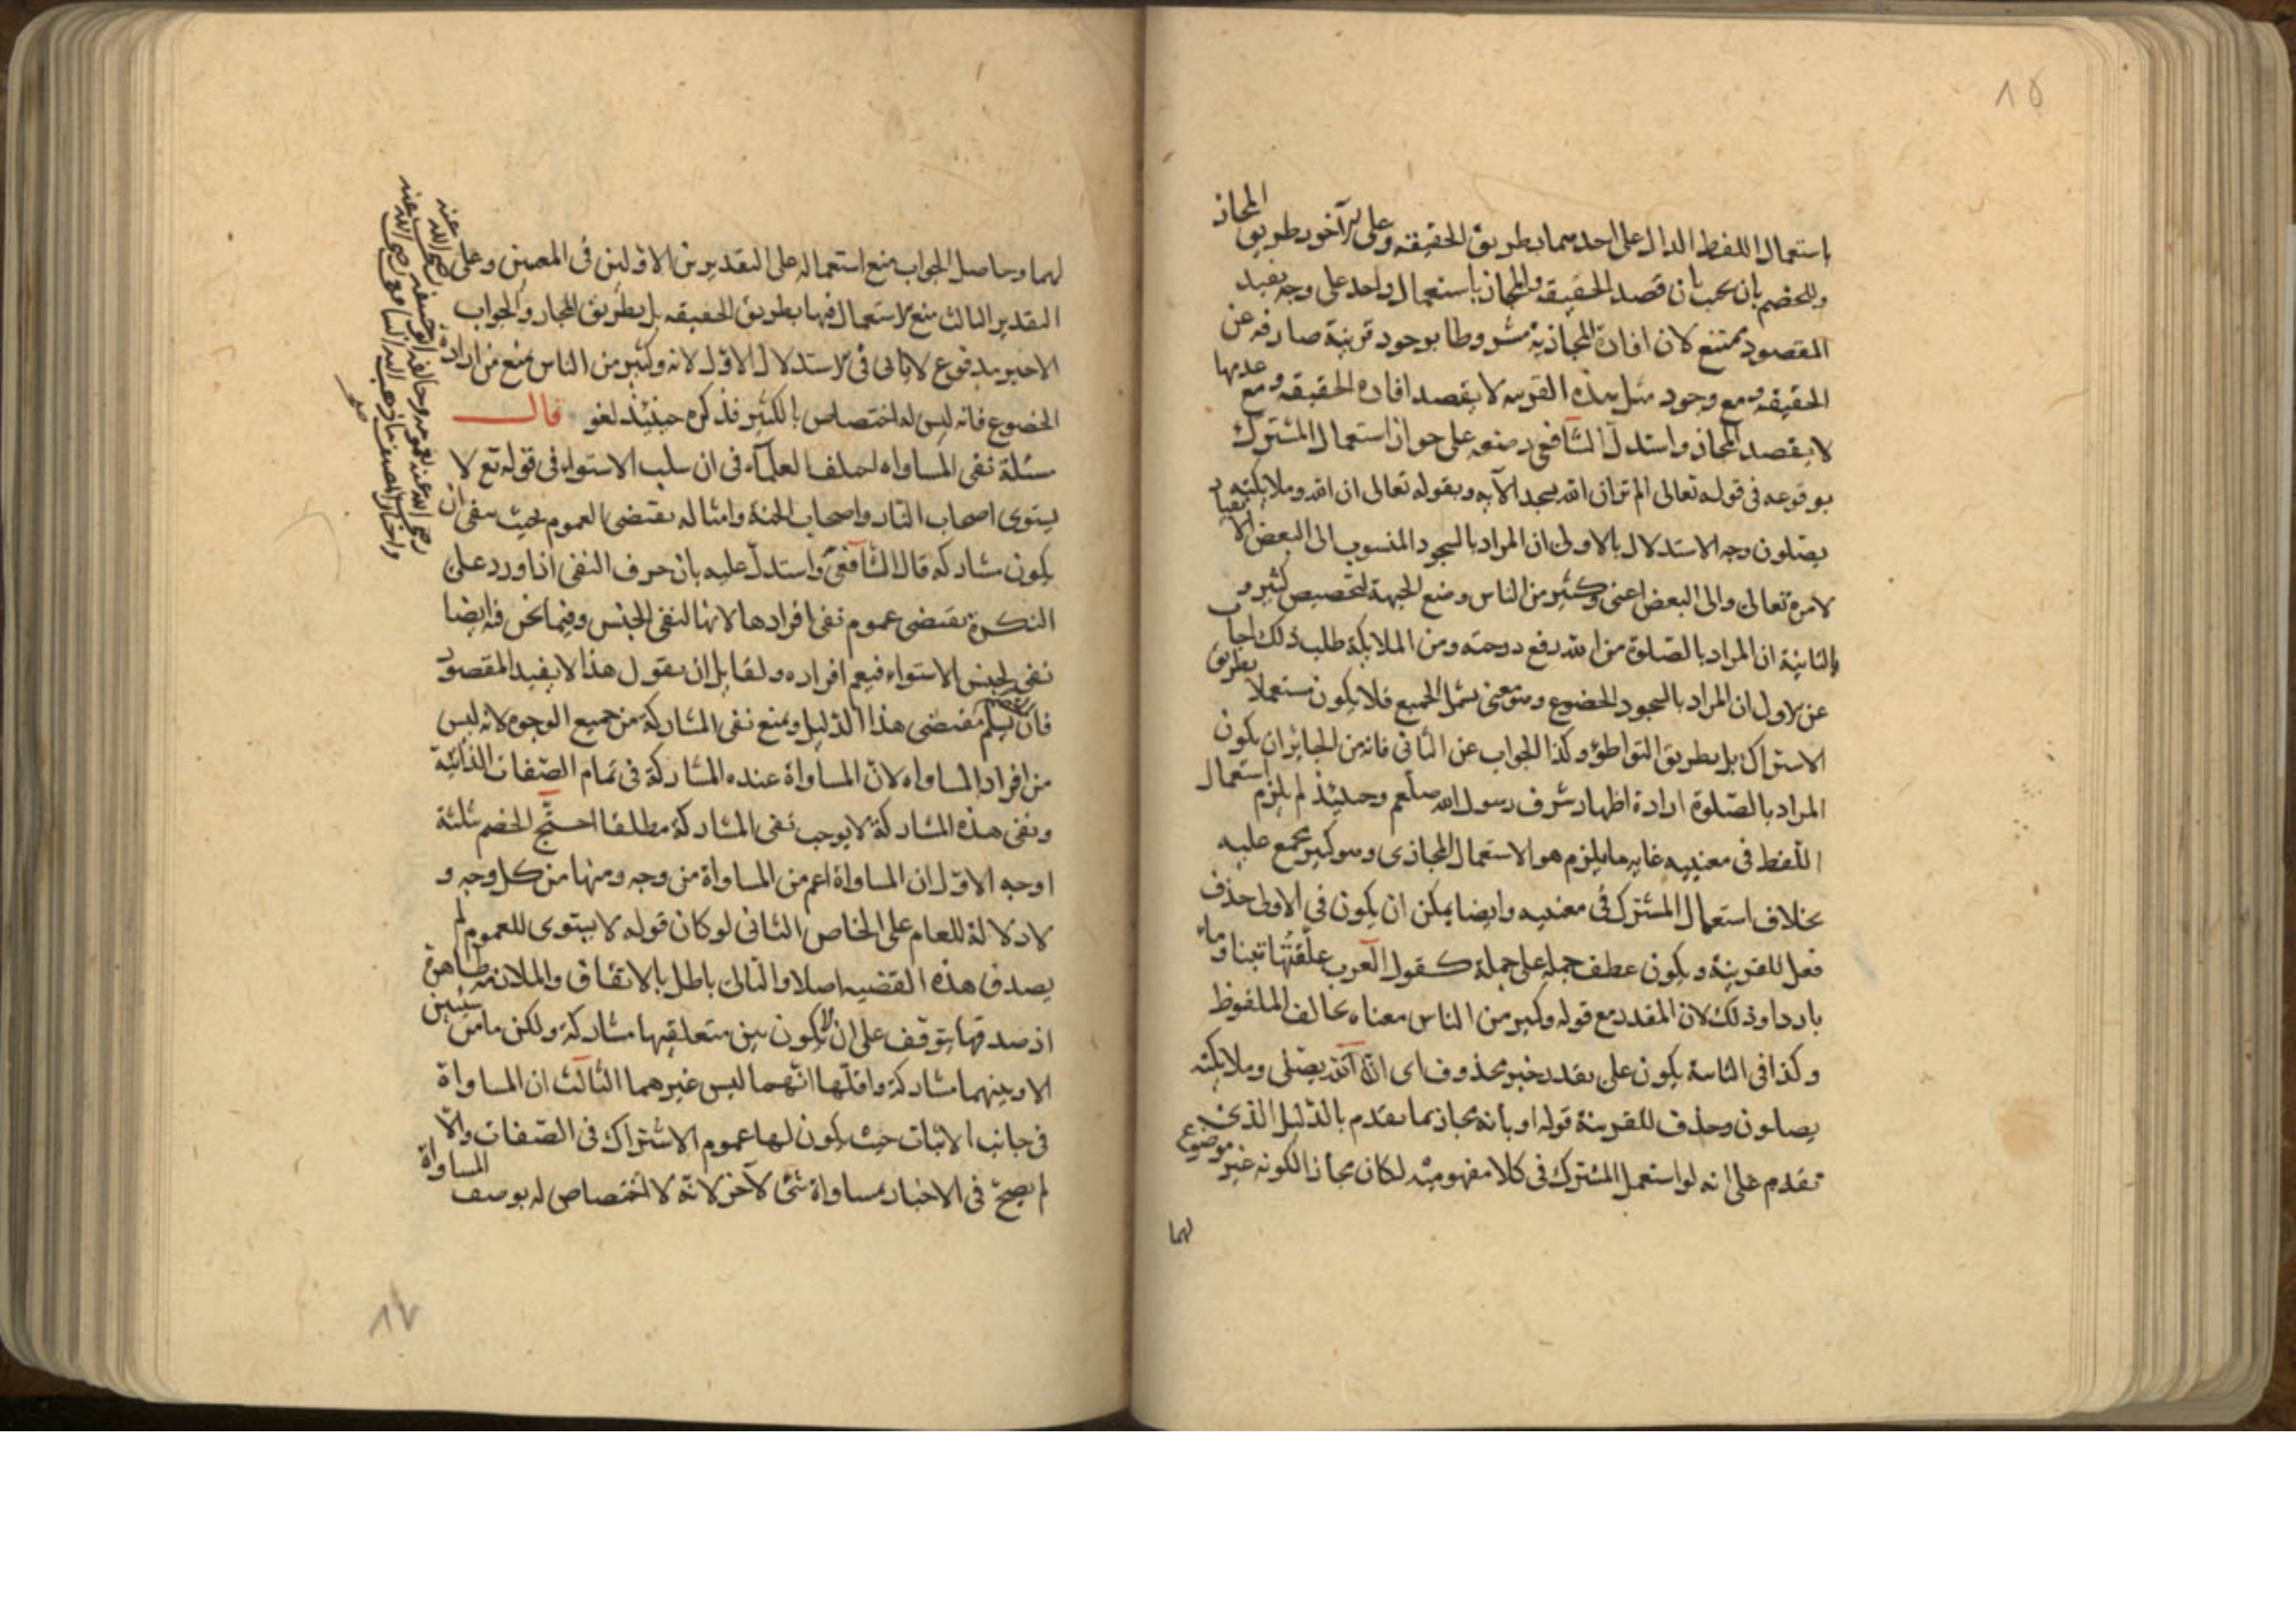 باستعمال اللفظ الدال على احدهما بطريق الحقيقه وعلى الآخر بطريق المجاز
وللخصم بان يجيب بان قصد الحقيقه والمجاز باستعمال واحد على وجه يفيد
المقصود ممتنع لان افادة المجازية مشروطا بوجود قرينة صارفه عن
الحقيقه ومع وجود مثل هذه القرينه لا يقصد افادة الحقيقه ومع عدمها
لا يقصد المجاز واستدل الشافعي رضه على جواز استعمال المشترك
بوقوعه في قوله تعالى الم تر ان الله يسجد الآيه وبقوله تعالى ان الله وملائكته
يصلون وجه الاستدلال بالاولى ان المراد بالسجود المنسوب الى البعض الانقياد
لامره تعالى والى البعض اعنى وكثير من الناس وضع الجبهة لتخصيص كثير و
بالثانية ان المراد بالصلوة من الله رفع درجته ومن الملايكة طلب ذلك اجاب
عن الاول ان المراد بالسجود الخضوع وهو معنى يشمل الجميع فلا يكون مستعملا بطريق
الاشتراك بل بطريق التواطؤ وكذا الجواب عن الثانى فانه من الجايز ان يكون
المراد بالصلوة ارادة اظهار شرف رسول الله صلعم وحينئذ لم يلزم استعمال
اللفظ فى معنييه غايه ما يلزم هو الاستعمال المجازى وهو كثير مجمع عليه
بخلاف استعمال المشترك فى معنييه وايضا يمكن ان يكون في الاولى حذف
فعل للقرينة ويكون عطف جمله على جملة كقول العرب علّفتُها تبنا وماء
باردا وذلك لان المقدر مع قوله وكثير من الناس معناه يخالف الملفوظ
وكذا فى الثانية يكون على تقدير خبر محذوف اى ان الله يصلى وملايكته
يصلون وحذف للقرينة قوله او بانه مجاز بما تقدم بالدليل الذى
تقدم على انه لو استعمل المشترك فى كلا مفهوميه لكان مجازا لكونه غير موضوع
لهما
لهما وحاصل الجواب منع استعماله على التقديرين الاولين فى المعنيين وعلى
التقدير الثالث منع الاستعمال فيها بطريق الحقيقه بل بطريق المجاز والجواب
الاخير مدفوع لا ياتى فى الاستدلال الاول لانه وكثير من الناس يمنع من ارادة
الخضوع فانه ليس له اختصاص بالكثير فذكره حينئذ لغو قال
مسئلة نفى المساواه اختلف العلمآء فى ان سلب الاستواء فى قوله تع لا
يستوى اصحاب النار واصحاب الجنة وامثاله يقتضى العموم بحيث ينفى ان
يكون مشاركه قال الشافعى واستدل عليه بان حرف النفى اذا ورد على
النكرة يقتضى عموم نفى افرادها لانها لنفى الجنس وفيما نحن فيه ايضا
نفى لجنس الاستواء فيعم افراده ولقايل ان يقول هذا لا يفيد المقصود
فان يسلم مقتضى هذا الدليل ويمنع نفى المشاركة من جميع الوجوه لانه ليس
من افراد المساواه لان المساواة عنده المشاركة فى تمام الصفات الذاتية
ونفى هذه المشاركة لا يوجب نفى المشاركة مطلقا احتج الخصم بثلثة
اوجه الاول ان المساواة اعم من المساواة من وجه ومنها من كل وجه و
لا دلالة للعام على الخاص الثانى لو كان قوله لا يستوى للعموم لم
يصدق هذه القضيه اصلا والتالى باطل بالاتفاق والملازمة ظاهرة
اذ صدقها يتوقف على ان لا يكون بين متعلقيها مشاركة ولكن ما من شيئين
الا وبينهما مشاركة واقلها انهما ليس غيرهما الثالث ان المساواة
فى جانب الاثبات حيث يكون لها عموم الاشتراك فى الصفات والا
لم يصح فى الاخبار بمساواة شئ لآخر لانه لا اختصاص له بوصف المساواة
رضى الله عنه
رضى الله عنه بعمومه وخالفه ابو حنيفه رضى الله عنه
واختار المصنف ما ذهب اليه الشافعى رضى الله عنه